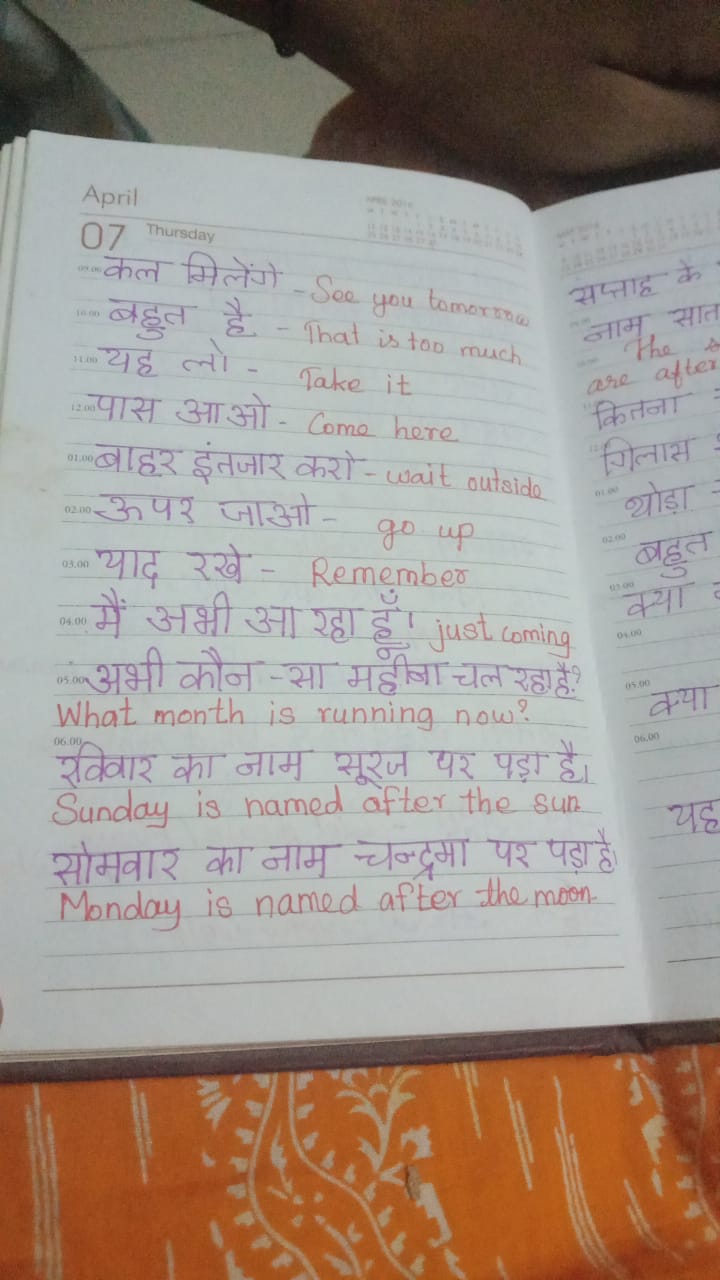 April
07 Thursday
APRIL 2016
09.00 कल मिलेंगे - See you tomorrow
10.00 बहुत है - That is too much
11.00 यह लो - Take it
12.00 पास आओ - Come here
01.00 बाहर इंतजार करो - wait outside
02.00 ऊपर जाओ - go up
03.00 याद रखे - Remember
04.00 मैं अभी आ रहा हूँ। just coming
05.00 अभी कौन-सा महीना चल रहा है?
What month is running now?
06.00
रविवार का नाम सूरज पर पड़ा है।
Sunday is named after the sun
सोमवार का नाम चन्द्रमा पर पड़ा है।
Monday is named after the moon.
सप्ताह के
नाम सात
The
are after
कितना
गिलास
01.00 थोड़ा
02.00 बहुत
03.00 क्या
04.00
05.00 क्या
06.00
यह